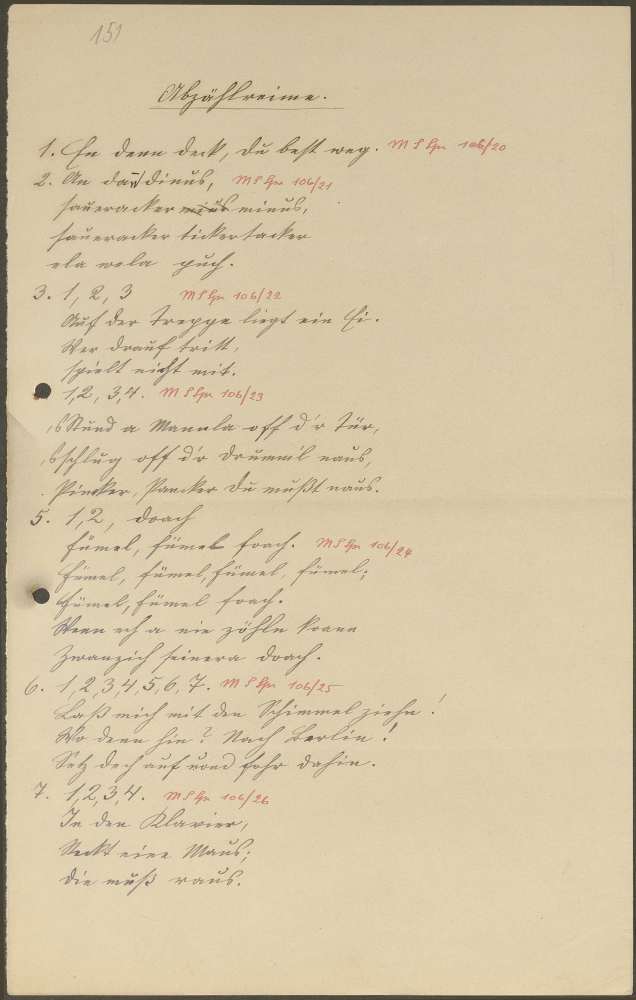 151
Abzählreime.
1. En denn deck, du best weg. M S Gr 106/20
2. An dan dinus, M S Gr 106/21
saueracker minus,
saueracker tickertacker
ela wela puch.
3. 1, 2, 3 M S Gr 106/22
Auf der Treppe liegt ein Ei.
Wer drauf tritt,
spielt nicht mit.
1, 2, 3, 4. M S Gr 106/23
Stund a Mannla off d'r Tür,
schlug off d'r Drummel naus,
Pincker, Pancker du mußt naus.
5. 1, 2, doach
fümel, fümel foach. M S Gr 106/24
Fümel, fümel, fümel, fümel;
Fümel, fümel foach.
Wenn ech a nie zöhln koann
Zwanzich seinera doach.
6. 1, 2, 3, 4, 5, 6, 7. M S Gr 106/25
Laß mich mit den Schimmel ziehn!
Wo denn hin? Nach Berlin!
Setz dech auf und fohr dahin.
7. 1, 2, 3, 4. M S Gr 106/26
In den Klavier,
Steckt eine Maus;
die muß raus.